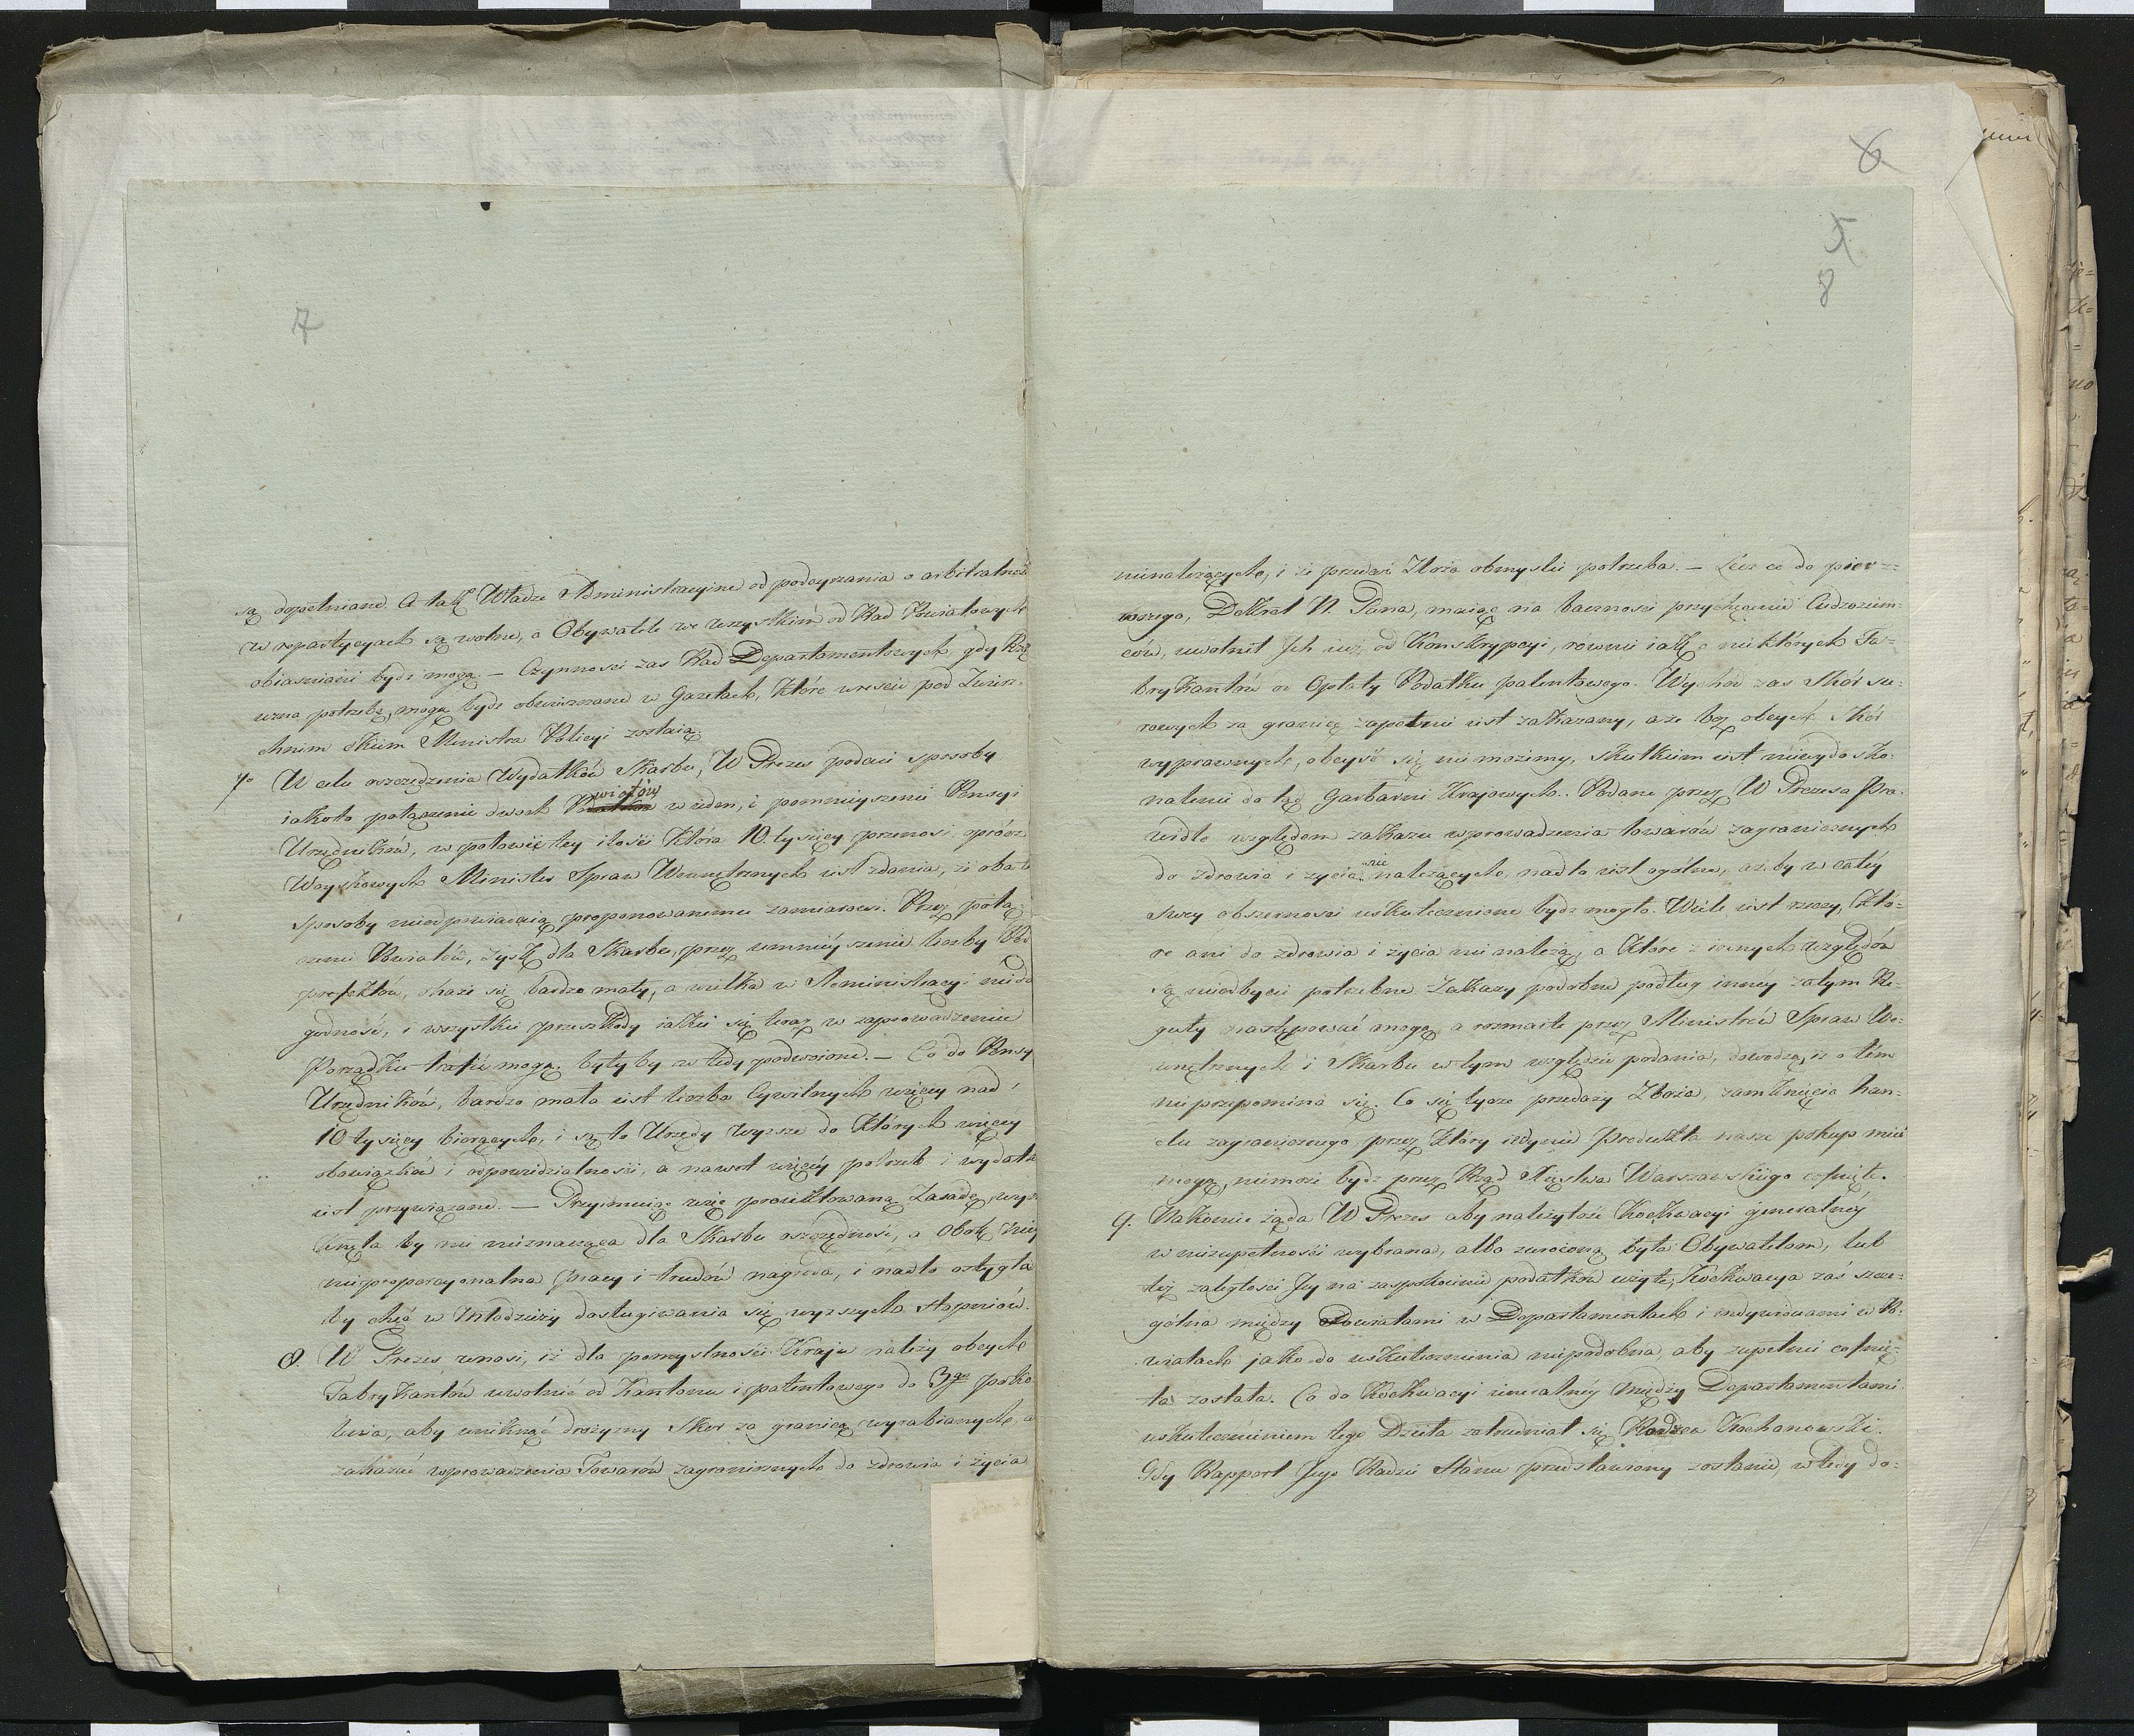 7
są dopełniane. A tak Władze Administracyine od podeyrzania o arbitralność
w repartycyach są wolne, a Obywatele we wszystkim od Rad Powiatowych
obiaśnieni bydź mogą — Czynności zas Rad Departamentowych, gdy Rząd
uzna potrzebę, mogą bydź obwieszczane w Gazetach, które wreście pod Zwierz-
chnim okiem Ministra Policyi zostaią.
7o W celu oszczędzenia Wydatków Skarbu, W Prezes podaie sposoby
iakoto połączenie dwoch Powiatów w ieden, i pomnieyszenie Pensyi
Urzędników, w połowie tey ilości która 10. tysięcy przenosi oprócz
Woyskowych Minister Spraw Wewnętrznych iest zdania, że oba te
sposoby nieodpowiadaią proponowanemu zamiarowi. Przez połą-
czenie Powiatów, zysk dla Skarbu, przez umnieyszenie liczby Pod
prefektow, okaże się bardzo mały, a wielka w Administracyi niedo
godność, i wszystkie przeszkody iakie się teraz w zaprowadzeniu
Porządku trafić mogą, byłyby wtedy podwoione. — Co do Pensyi
Urzędników, bardzo mała iest liczba Cywilnych więcey nad
10 tysięcy biorących, i są to Urzędy wyższe do których więcey
obowiązków i odpowiedzialności, a nawet więcey potrzeb i wydatk
iest przywiązane. — Przyimuiąc więc proiektowaną Zasadę, wyni
knęła by nie nieznacząca dla Skarbu oszczędność, a obok niey
nieproporcyonalna pracy i trudów nagroda, i nadto ostygła
by chęć w Młodzieży dosługiwania się wyższych stopniów.
8. W Prezes wnosi, iż dla pomyślności Kraju należy obcych
Fabrykantów uwolnić od Kantonu i patentowego do 3go poko
lenia, aby uniknąć drożyzny Skor za granicą wyrabianych, a
zakazać wprowadzenia Towarów zagranicznych do zdrowia i życia
6
5
8
nienależących, i że przedaż Zboża obmyślić potrzeba. — Lecz co do pierw-
wszego, Dekret N. Pana, maiąc na baczności przychęcenie Cudzoziem-
ców, uwolnił Ich iuż od Konskrypcyi, równie iak o niektórych Fa-
brykantów od Opłaty Podatku patentowego. Wychód zas Skór su-
rowych za granicę zapełnie iest zakazany, a że bez obcych skór
wyprawnych, obeyść się nie możemy, skutkiem iest nieeydosko-
nalenie do tąd Garbarni Krajowych. Podane przez W Prezesa Pra-
widło względem zakazu wprowadzenia towarów zagranicznych
do zdrowia i życia nie należących, nadto iest ogólne, aż by w całey
swey obszerności uskutecznione bydź mogło. Wiele iest rzeczy, któ-
re ani do zdrowia i życia nie należą, a które z innych względów
są nieodbycie potrzebne Zakazy podobne podług inney zatym Re-
guły następować mogą, a rozmaite przez Ministrów Spraw We-
wnętrznych i Skarbu w tym względzie podania, dowodzą, iż o tém
nie przepomina się. Co się tycze przedaży Zboża, zamknięcie han-
dlu zagranicznego przez który iedynie Produkta nasze pokup mieć
mogą, niemoże bydź przez Rząd Xięstwa Warszawskiego cofnięte.
9. Nakoniec żąda W Prezes aby należytość Koekwacyi generalney
w niezupełności wybrana, albo zwróconą była Obywatelom, lub
też zaległości Jey na zaspokoienie podatków użyte, Koekwacya zaś szcze-
gólna między Powiatami w Departamentach i indywiduami w Po-
wiatach jako do uskutecznienia niepodobna, aby zupełnie cofnię-
ta została. Co do Koekwacyi generalney między Departamentami
uskutecznieniem tego Dzieła zatrudniał się Radzca Kochanowski.
Gdy Rapport Jego Radzie Stanu przedstawiony zostanie, wtedy do-